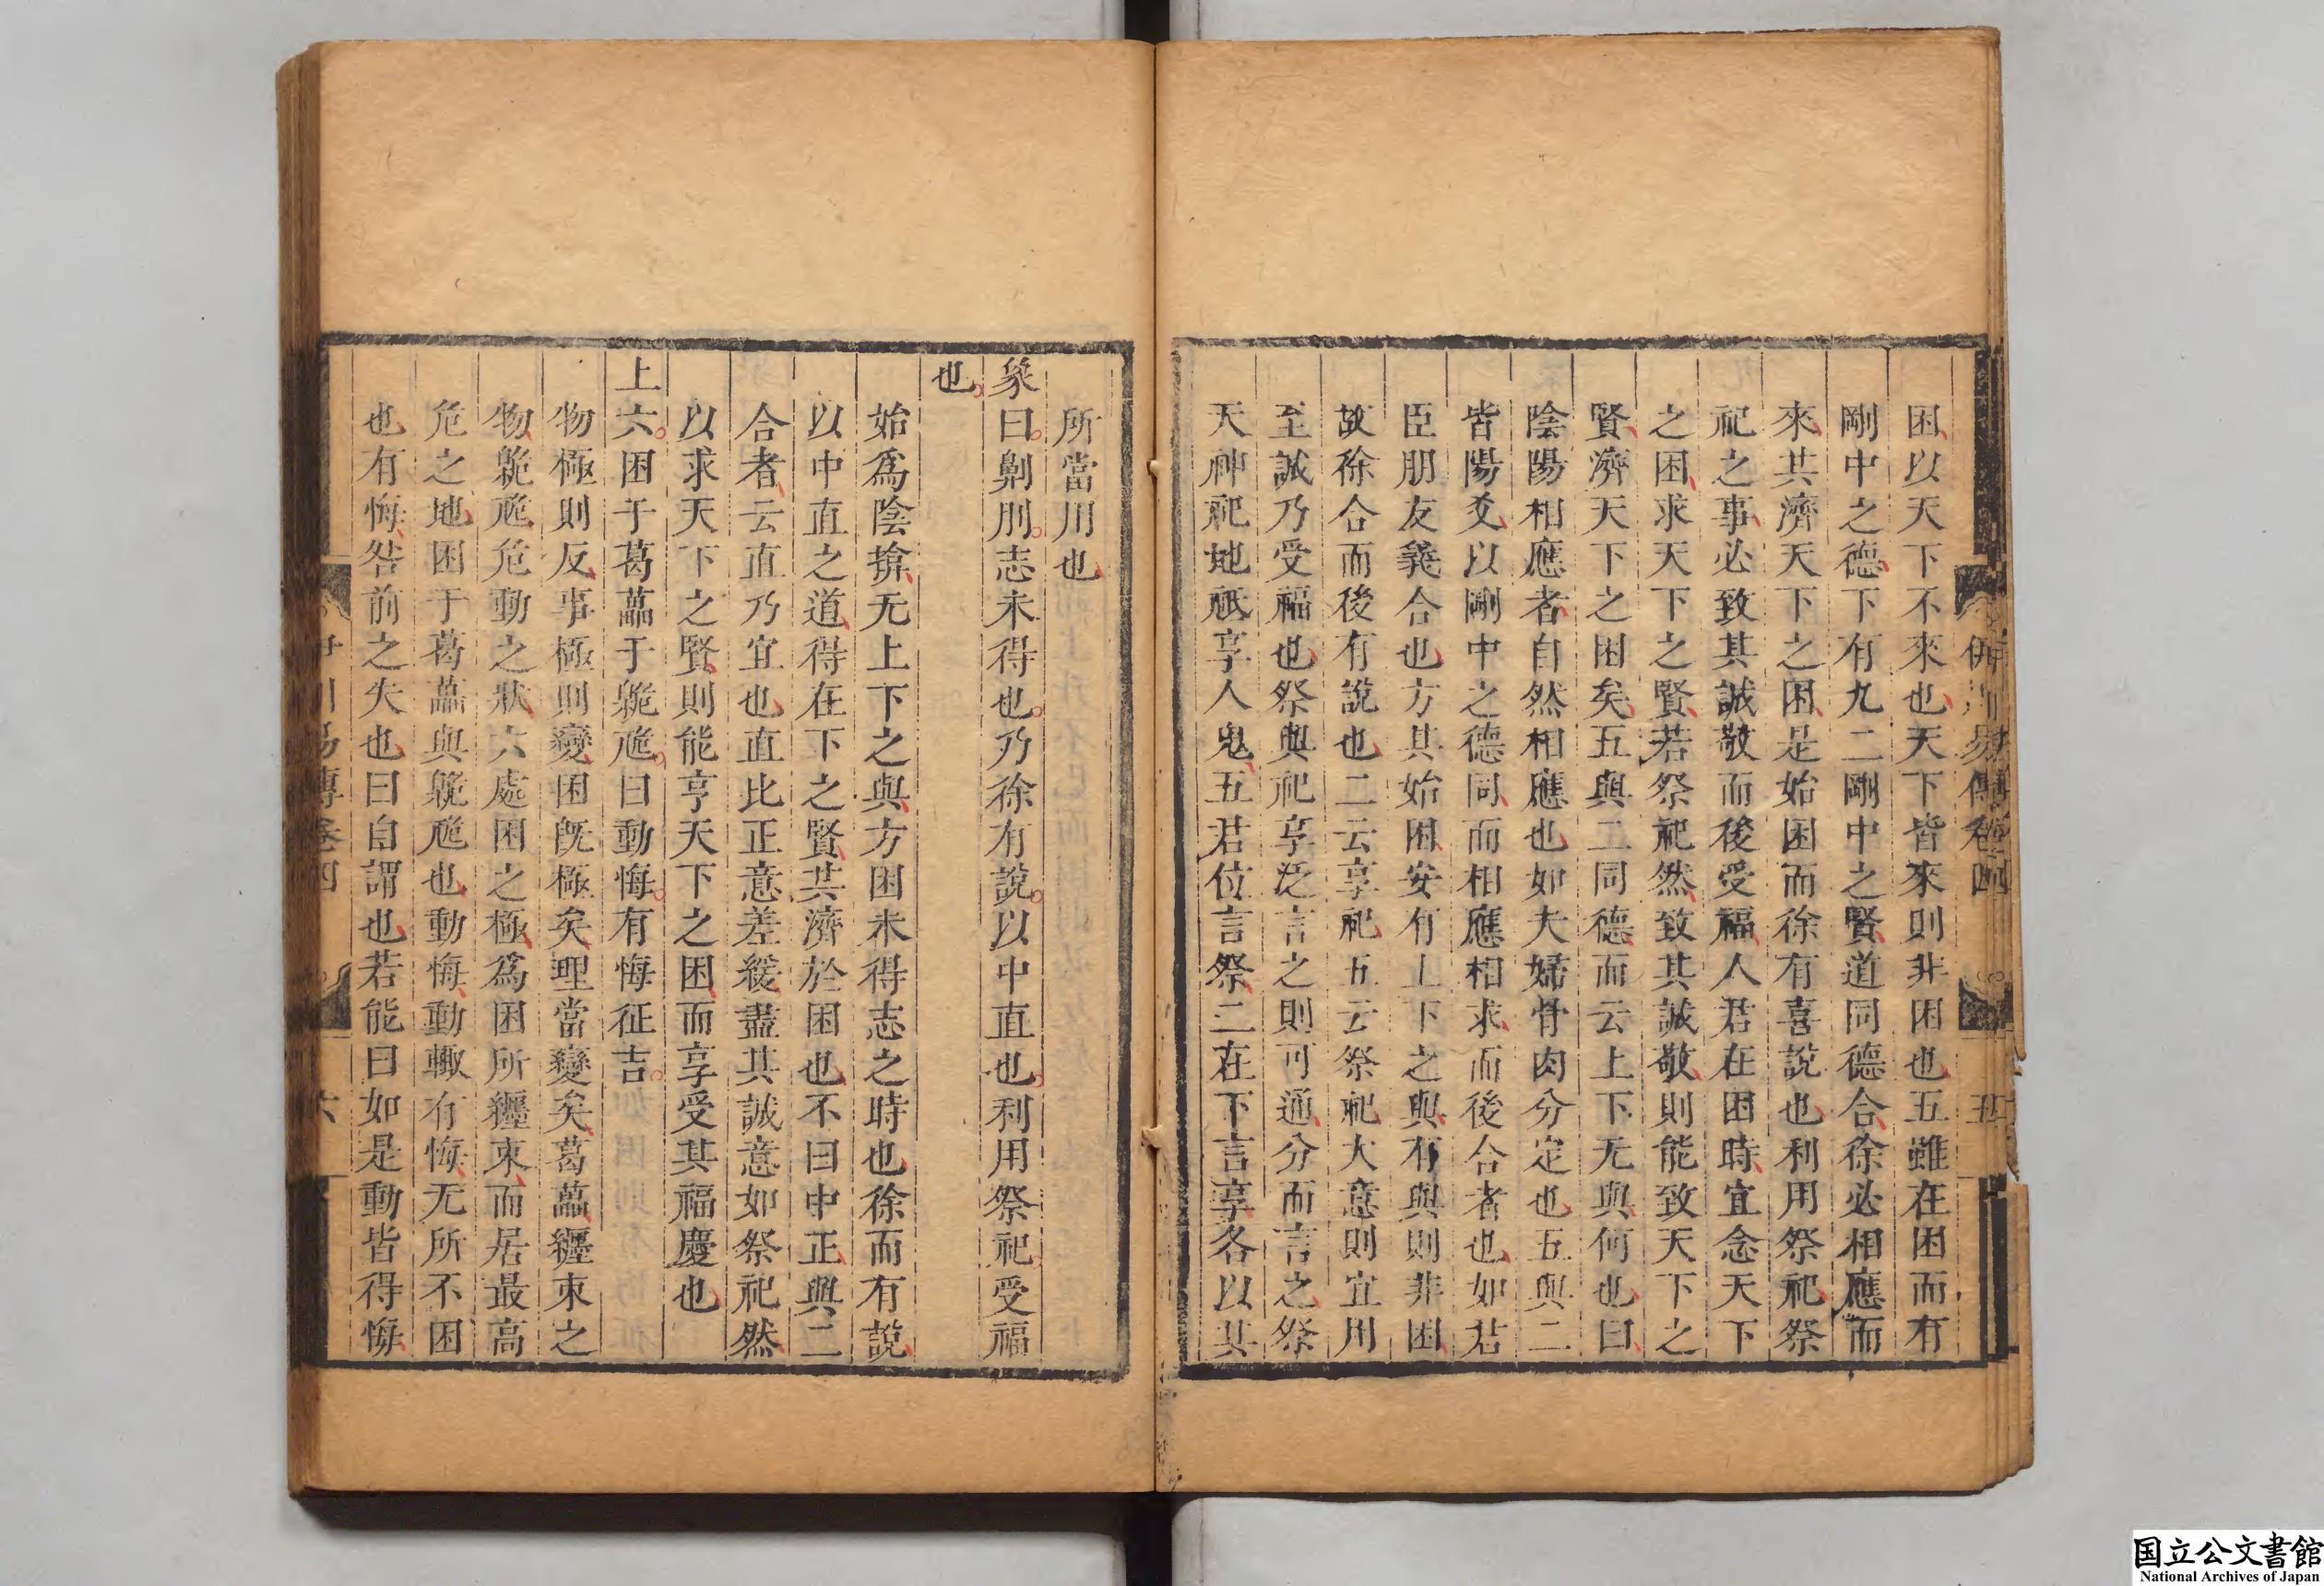 伊川易傳卷四
五
困以天下不來也天下皆來則非困也五雖在困而有
剛中之德下有九二剛中之賢道同德合徐必相應而
來共濟天下之困是始困而徐有喜說也利用祭祀祭
祀之事必致其誠敬而後受福人君在困時宜念天下
之困求天下之賢若祭祀然致其誠敬則能致天下之
賢濟天下之困矣五與二同德而云上下无與何也曰
陰陽相應者自然相應也如夫婦骨肉分定也五與二
皆陽爻以剛中之德同而相應相求而後合者也如君
臣朋友義合也方其始困安有上下之與有與則非困
故徐合而後有說也二云享祀五云祭祀大意則宜用
至誠乃受福也祭與祀享泛言之則可通分而言之祭
天神祀地祇享人鬼五君位言祭二在下言享各以其
所當用也
象曰劓刖志未得也乃徐有說以中直也利用祭祀受福
也
始爲陰揜无上下之與方困未得志之時也徐而有說
以中直之道得在下之賢共濟於困也不曰中正與二
合者云直乃宜也直比正意差緩盡其誠意如祭祀然
以求天下之賢則能亨天下之困而享受其福慶也
上六困于葛藟于臲卼曰動悔有悔征吉
物極則反事極則變困既極矣理當變矣葛藟纒束之
物臲卼危動之狀六處困之極爲困所纒束而居最高
危之地困于葛藟與臲卼也動悔動輙有悔无所不困
也有悔咎前之失也曰自謂也若能曰如是動皆得悔
伊川易傳卷四
六
国立公文書館
National Archives of Japan